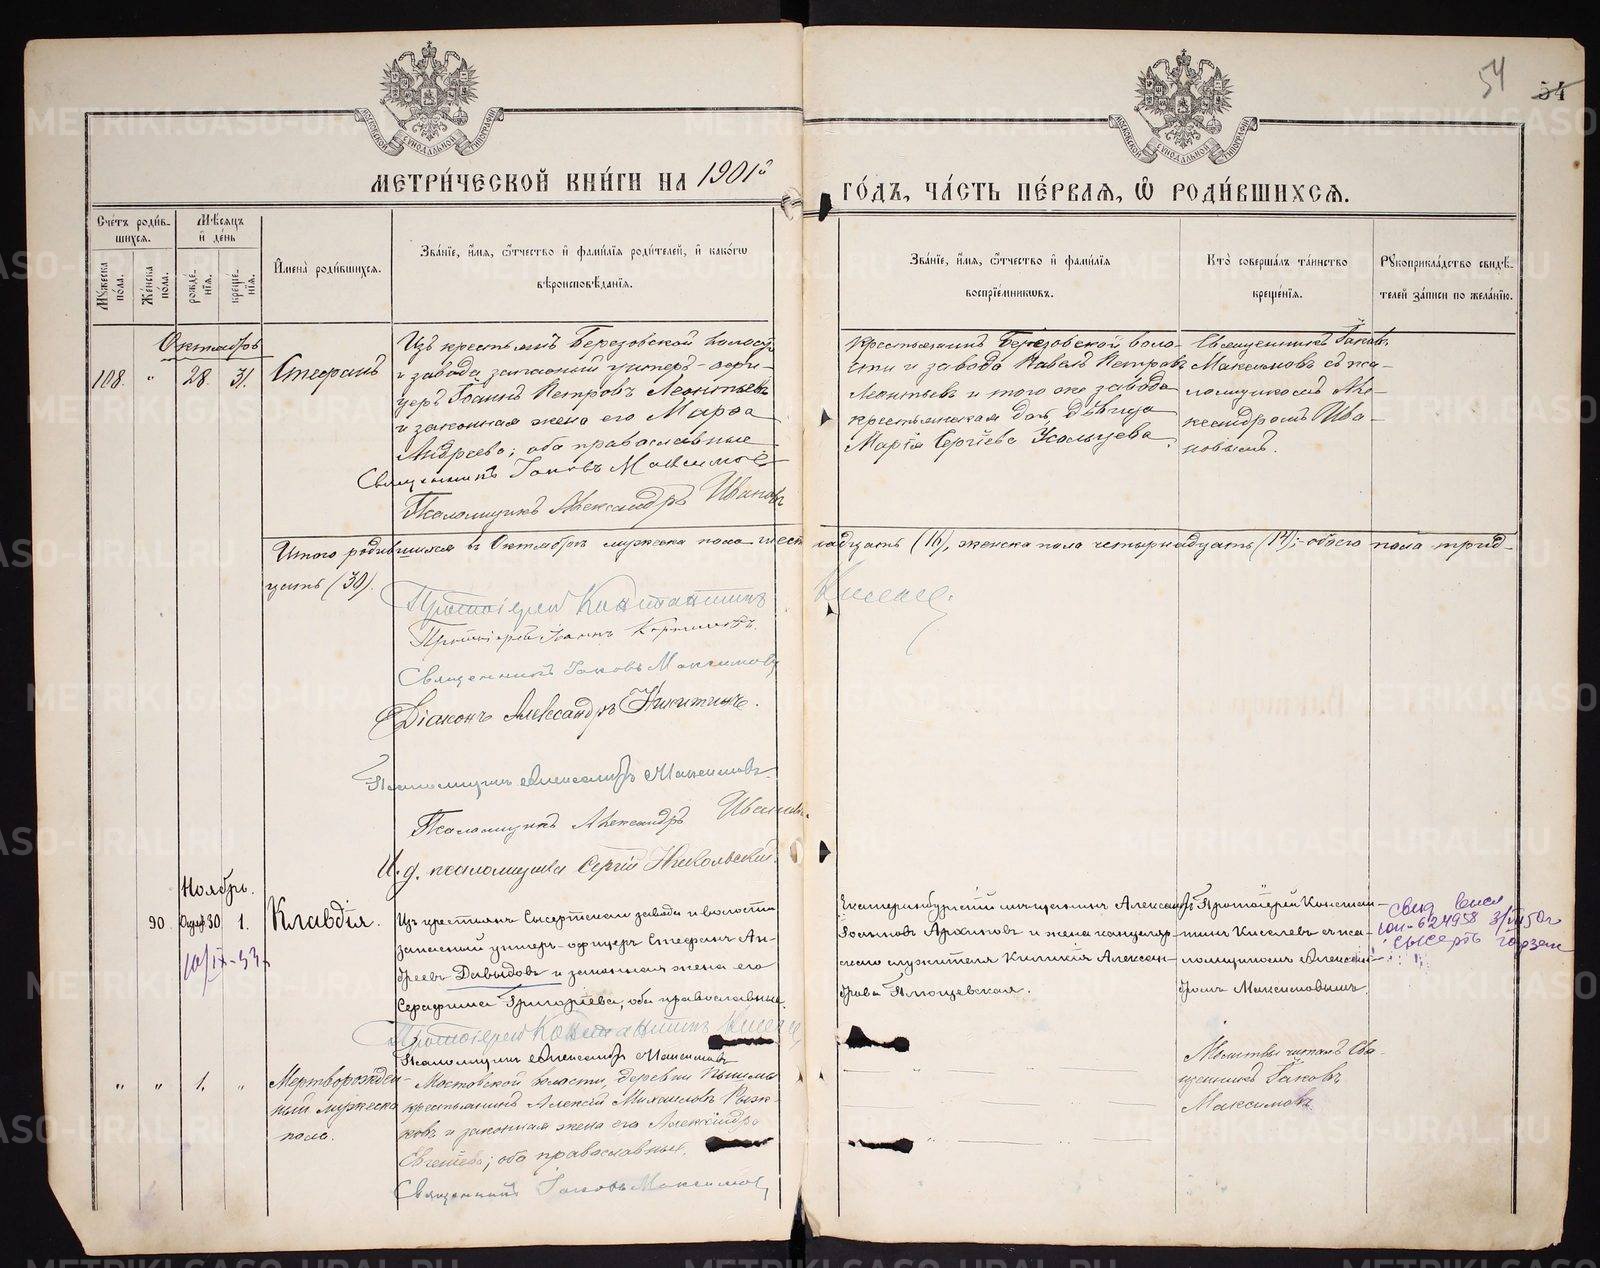 54
54
МЕТРИ́ЧЕСКОЙ КНИ́ГИ НА 1901й
ГО́ДЪ, ЧА́СТЬ ПЕ́РВАѦ, Ѡ РОДИ́ВШИХСѦ.
Сче́тъ роди́в-
шихсѧ.
Мѣ́сѧцъ
и҆ де́нь
Мꙋ́жеска
по́ла.
Же́нска
по́ла.
рожде́-
нїѧ.
креще́-
нїѧ.
И҆мена̀ роди́вшихсѧ.
Зва́нїе, и҆́мѧ, ѻ҆́тчество и҆ фами́лїѧ роди́телей, и҆ како́гѡ
вѣроисповѣ́данїѧ.
Зва́нїе, и҆́мѧ, ѻ҆́тчество и҆ фами́лїѧ
воспрїе́мникѡвъ.
Кто̀ соверша́лъ та́инство
креще́нїѧ.
Рꙋкоприкла́дство свидѣ́-
телей за́писи по жела́нїю.
Октябрь
108. " 28. 31. Стефанъ
Изъ крестьянъ Березовской волости
и завода запасный унтеръ-офи-
церъ Іоаннъ Петровъ Леонтьевъ
и законная жена его Марѳа
Андреева; оба православные
Священникъ Іаковъ Максимовъ
Псаломщикъ Александръ Ивановъ
Крестьянинъ Березовской воло-
сти и завода Павелъ Петровъ
Леонтьевъ и того же завода
крестьянская дочь дѣвица
Марія Сергіева Усольцева.
Священникъ Іаковъ
Максимовъ съ пса-
ломщикомъ Але-
ксандромъ Ива-
новымъ.
Итого родившихся въ Октябрѣ мужеска пола шест надцать (16), женска пола четырнадцать (14);- обоего пола трид-
цать (30).
Протоіерей Константинъ Киселевъ.
Протоіерей Іоаннъ
Священникъ Іаковъ Максимовъ
Діаконъ Александръ Никитинъ.
Псаломщикъ Александръ Максимовъ.
Псаломщикъ Александръ Ивановъ
И. д. псаломщика Сергій Никольскій.
Ноябрь.
90. 30 1. Клавдія.
10/IX-53г
Изъ крестьянъ Сысертскаго завода и волости
запасный унтеръ-офицеръ Стефанъ Ан-
дреевъ Давыдовъ и законная жена его
Серафима Григоріева, оба православные.
Протоіерей Константинъ Киселевъ
Псаломщикъ Александръ Максимовъ
Екатеринбургскій мѣщанинъ Александръ
Іоанновъ Архиповъ и жена канцеляр-
скаго служителя Александ-
рова
Протоіерей Констан-
тинъ Киселевъ съ пса-
ломщикомъ Алексан-
дромъ Максимовымъ.
свид
624958
Сысерть
" " 1. "
Мертворожден-
ный мужеска
пола.
Мостовской волости, деревни Пышмы
крестьянинъ Алексій Михаиловъ Рыж-
ковъ и законная жена его Александра
Евгеніева; оба православные.
Священникъ Іаковъ Максимовъ
Молитвы читалъ Свя-
щенникъ Іаковъ
Максимовъ